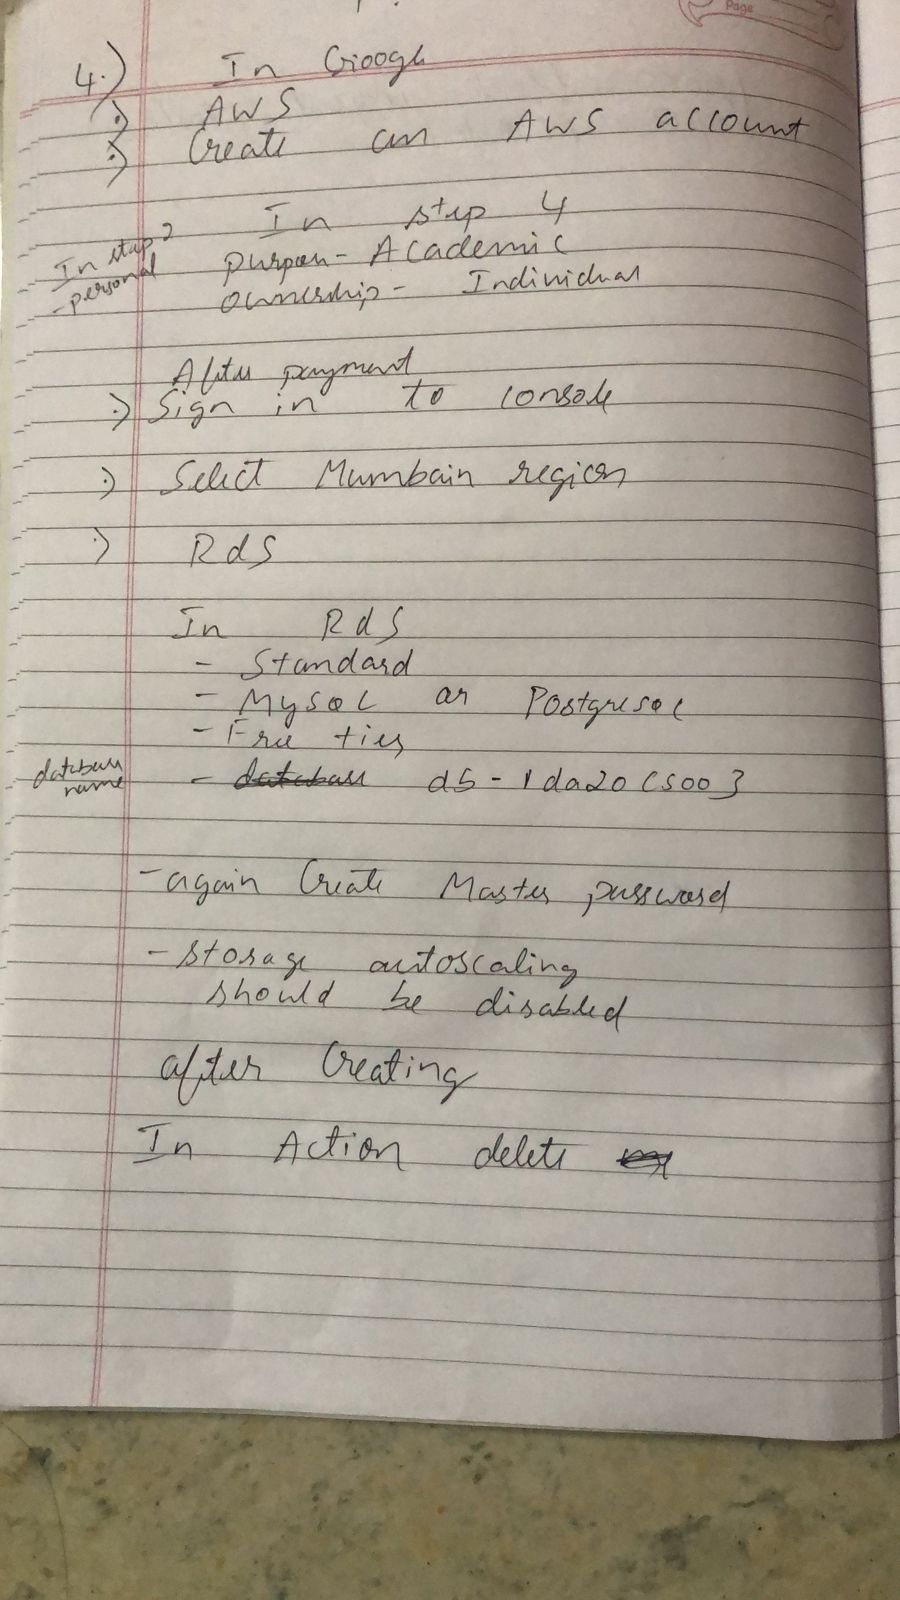 Page
4.) In Google
:) AWS
:) Create an AWS account
In step 4
In step 2
- personal
purpose - Academic
ownership - Individual
After payment
:) Sign in to console
:) Select Mumbain region
:) RdS
In RdS
- Standard
- MySQL or PostgreSQL
- Free tier
database name
- database db-1da20CS003
- again Create Master password
- storage autoscaling
should be disabled
after Creating
In Action delete